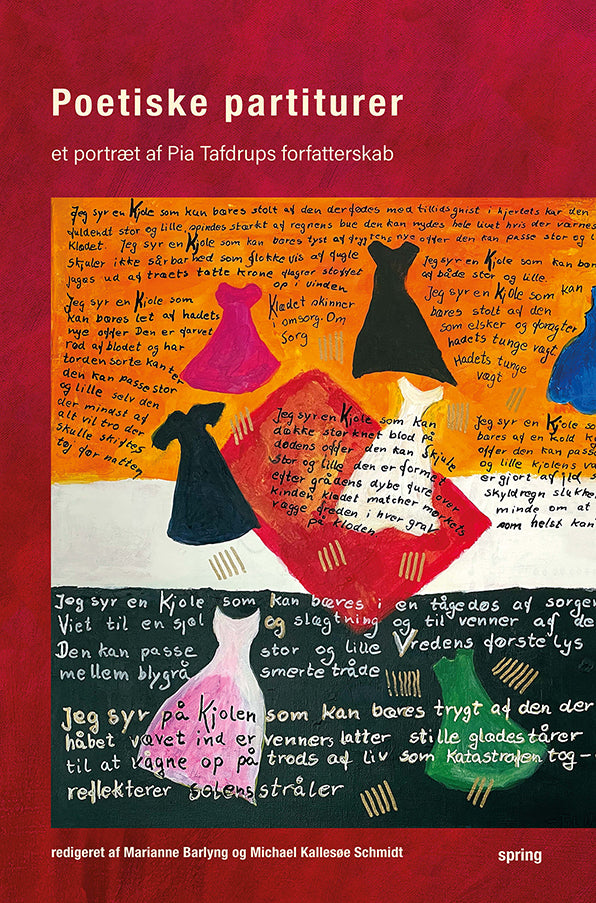 Poetiske partiturer
et portræt af Pia Tafdrups forfatterskab
Jeg syr en Kjole som kan bæres stolt af den der fødes med tillidsgnist i hjertets kar den
fuldendt stor og lille, spindes stærkt af regnens bue den kan nydes hele livet hvis der værnes
Klædet. Jeg syr en Kjole som kan bæres tyst af flygtningens nye offer den kan passe stor og l
Skjuler ikke sårbarhed som flokkevis af fugle
jages ud af træets tætte krone flagrer stoffet
op i vinden
Klædet skinner
i omsorg. Om
Sorg
Jeg syr en Kjole som
kan bæres let af hadets
nye offer Den er farvet
rød af blodet og har
tordensorte kanter
den kan passe stor
og lille selv den
der mindst af
alt vil tro der
skulle skiftes
tøj før natten
Jeg syr en Kjole som kan bær
af både stor og lille.
Jeg syr en Kjole som kan
bæres stolt af den
som elsker og foragter
hadets tunge vægt
Hadets tunge
vægt
Jeg syr en Kjole som kan
dække størknet blod på
dødens offer den kan skjule
stor og lille den er formet
efter grådens dybe fure over
kinden klædet matcher mørkets
vægge freden i hver grav
på kloden
Jeg syr en Kjole so
bæres af en kold k
offer den kan passe
og lille kjolens væ
er gjort af ild s
skyldregn slukke
minde om at
som helst kan
Jeg syr en Kjole som kan bæres i en tågedøs af sorgen
Viet til en sjæl og slægtning og til venner af de
Den kan passe stor og lille Vredens første lys
mellem blygrå smerte tråde
Jeg syr på Kjolen som kan bæres trygt af den der
håbet vævet ind er venners latter stille glædestårer
til at vågne op på trods af liv som Katastrofen tog –
reflekterer solens stråler
redigeret af Marianne Barlyng og Michael Kallesøe Schmidt
spring